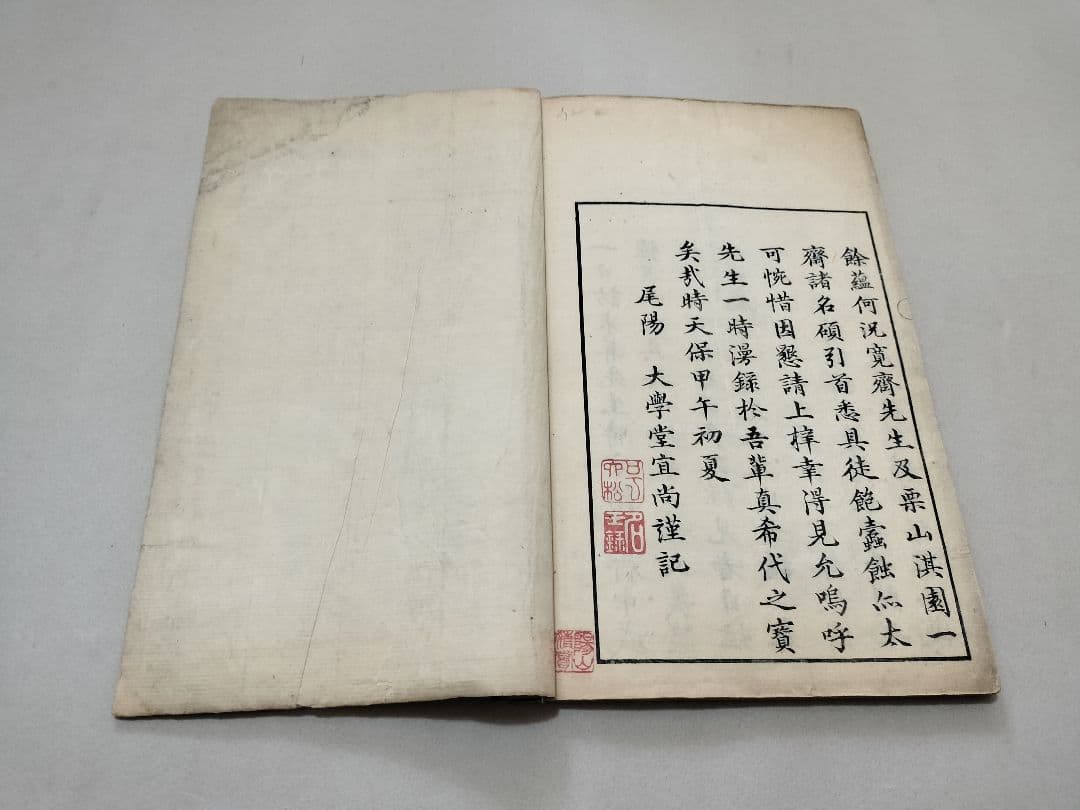 餘蘊何況寛齋先生及栗山淇園一
齋諸名碩引首悉具徒飽蠧蝕尒太
可惋惜因懇請上梓幸淂見允嗚呼
先生一時漫録於吾輩真希代之寳
矣㢤時天保甲午初夏
尾陽 大學堂宜尚謹記